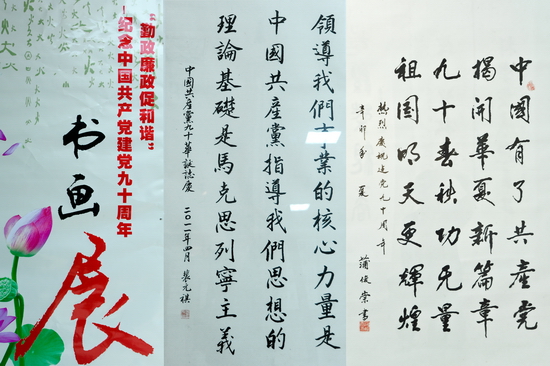 “勤政廉政促和谐”
—纪念中国共产党建党九十周年
书画
展
領導我們事業的核心力量是
中國共產黨指導我們思想的
理論基礎是馬克思列寧主義
中國共產黨九十華誕誌慶 二〇一一年四月
中國有了共產党
揭開華夏新篇章
九十春秋功无量
祖国明天更輝煌
熱烈慶祝建党九十周年
辛卯年 夏